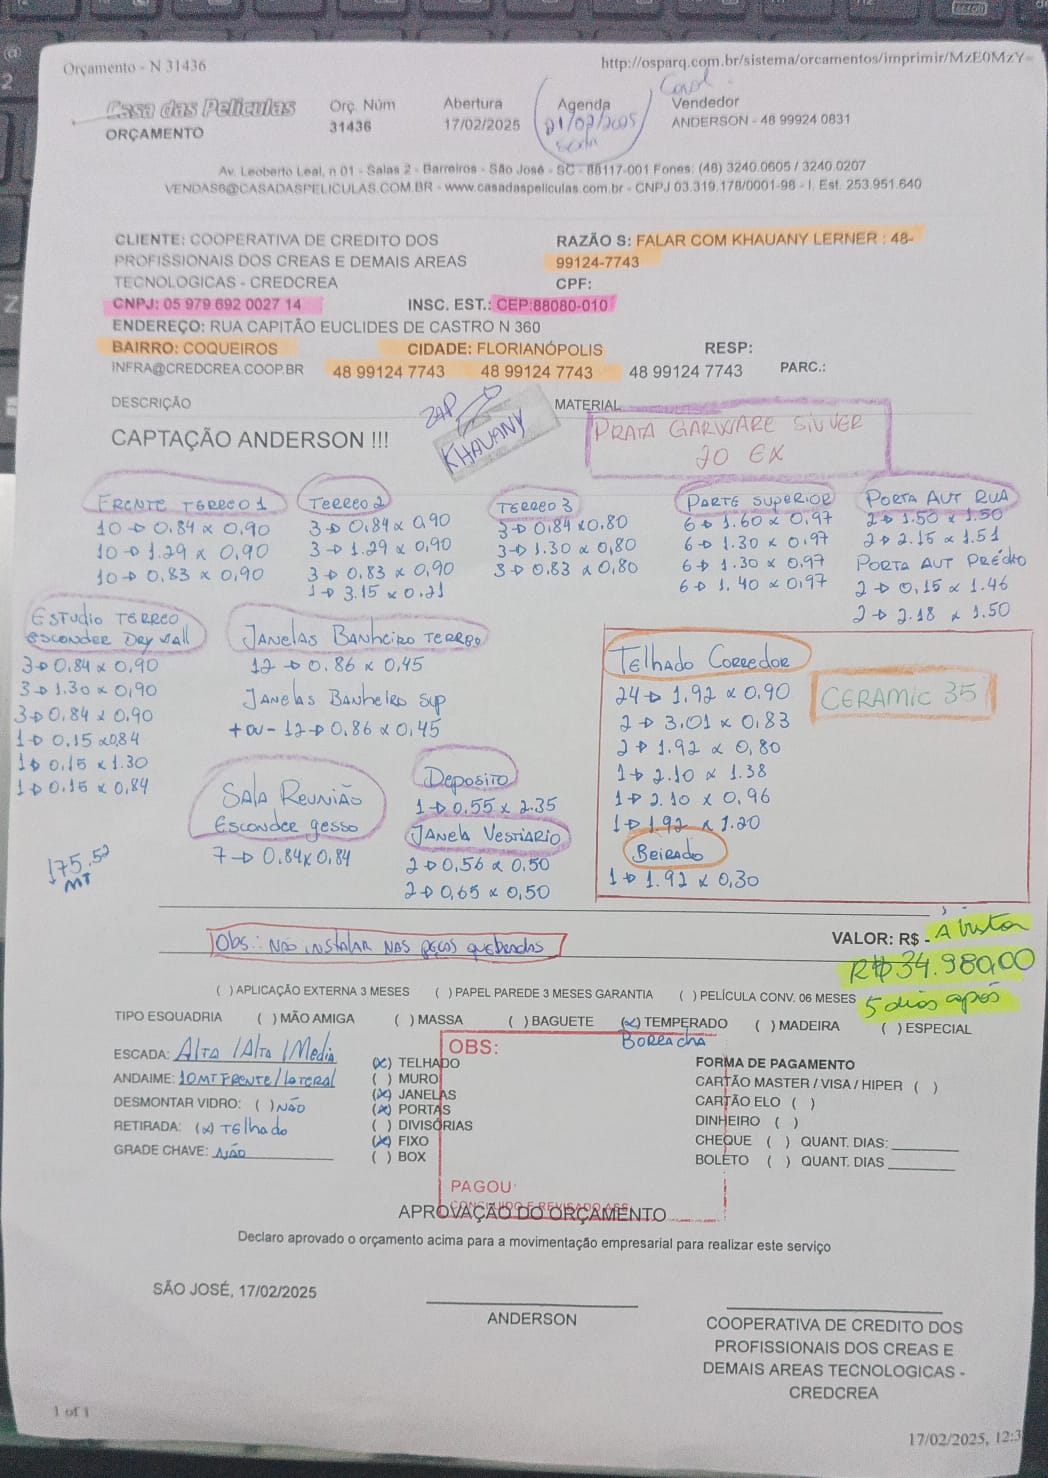 Orçamento - N 31436
http://osparq.com.br/sistema/orcamentos/imprimir/MzE0MzY=
Casa das Películas
ORÇAMENTO
Orç. Núm
31436
Abertura
17/02/2025
Agenda
21/02/2025
sexta
Vendedor
ANDERSON - 48 99924 0831
Av. Leoberto Leal, n 01 - Salas 2 - Barreiros - São José - SC - 88117-001 Fones: (48) 3240.0605 / 3240.0207
VENDAS6@CASADASPELICULAS.COM.BR - www.casadaspeliculas.com.br - CNPJ 03.319.178/0001-98 - I. Est. 253.951.640
CLIENTE: COOPERATIVA DE CREDITO DOS
PROFISSIONAIS DOS CREAS E DEMAIS AREAS
TECNOLOGICAS - CREDCREA
RAZÃO S: FALAR COM KHAUANY LERNER : 48-
99124-7743
CPF:
CNPJ: 05 979 692 0027 14
INSC. EST.: CEP:88080-010
ENDEREÇO: RUA CAPITÃO EUCLIDES DE CASTRO N 360
BAIRRO: COQUEIROS
CIDADE: FLORIANÓPOLIS
RESP:
INFRA@CREDCREA.COOP.BR 48 99124 7743 48 99124 7743 48 99124 7743 PARC.:
DESCRIÇÃO
MATERIAL
ZAP
KHAUANY
CAPTAÇÃO ANDERSON !!!
PRATA GARWARE SILVER
20 EX
FRENTE TERREO 1
10 → 0.84 x 0,90
10 → 1.29 x 0,90
10 → 0,83 x 0,90
TERREO 2
3 → 0.84 x 0,90
3 → 1.29 x 0,90
3 → 0.83 x 0,90
1 → 3.15 x 0.21
TERREO 3
3 → 0,84 x 0,80
3 → 1.30 x 0,80
3 → 0.83 x 0,80
PARTE SUPERIOR
6 → 1.60 x 0,97
6 → 1.30 x 0,97
6 → 1.30 x 0,97
6 → 1,40 x 0,97
PORTA AUT RUA
2 → 1.50 x 1.50
2 → 2.15 x 1.51
PORTA AUT PRÉDIO
2 → 0,15 x 1.46
2 → 2.18 x 1.50
ESTUDIO TERREO
esconder Dry Wall
3 → 0.84 x 0,90
3 → 1.30 x 0,90
3 → 0.84 x 0,90
1 → 0.15 x 0,84
1 → 0,15 x 1.30
1 → 0.15 x 0,84
JANELAS BANHEIRO TERREO
12 → 0.86 x 0,45
JANELAS BANHEIRO SUP
+ OU - 12 → 0,86 x 0,45
SALA REUNIÃO
Esconder gesso
7 → 0.84 x 0,84
DEPOSITO
1 → 0.55 x 2.35
JANELA VESTIARIO
2 → 0,56 x 0,50
2 → 0,65 x 0,50
TELHADO CORREDOR
24 → 1.92 x 0,90
2 → 3.01 x 0.83
2 → 1.92 x 0,80
1 → 2.10 x 1.38
1 → 2.10 x 0,96
1 → 1.92 x 1.20
CERAMIC 35
BEIRADO
1 → 1.92 x 0,30
175,52
MT
Obs.: NÃO INSTALAR NAS PEÇAS quebradas
VALOR: R$ - A Vista
R$ 34.980,00
5 dias após
( ) APLICAÇÃO EXTERNA 3 MESES ( ) PAPEL PAREDE 3 MESES GARANTIA ( ) PELÍCULA CONV. 06 MESES
TIPO ESQUADRIA ( ) MÃO AMIGA ( ) MASSA ( ) BAGUETE (x) TEMPERADO ( ) MADEIRA ( ) ESPECIAL
BORRACHA
ESCADA: ALTA / ALTA / Media
ANDAIME: 10MT FRENTE / LATERAL
DESMONTAR VIDRO: ( ) NÃO
RETIRADA: (x) TElhado
GRADE CHAVE: NÃO
(x) TELHADO
( ) MURO
(x) JANELAS
(x) PORTAS
( ) DIVISÓRIAS
(x) FIXO
( ) BOX
OBS:
PAGOU:
FORMA DE PAGAMENTO
CARTÃO MASTER / VISA / HIPER ( )
CARTÃO ELO ( )
DINHEIRO ( )
CHEQUE ( ) QUANT. DIAS:
BOLETO ( ) QUANT. DIAS
APROVAÇÃO DO ORÇAMENTO
Declaro aprovado o orçamento acima para a movimentação empresarial para realizar este serviço
SÃO JOSÉ, 17/02/2025
ANDERSON
COOPERATIVA DE CREDITO DOS
PROFISSIONAIS DOS CREAS E
DEMAIS AREAS TECNOLOGICAS -
CREDCREA
1 of 1
17/02/2025, 12:3